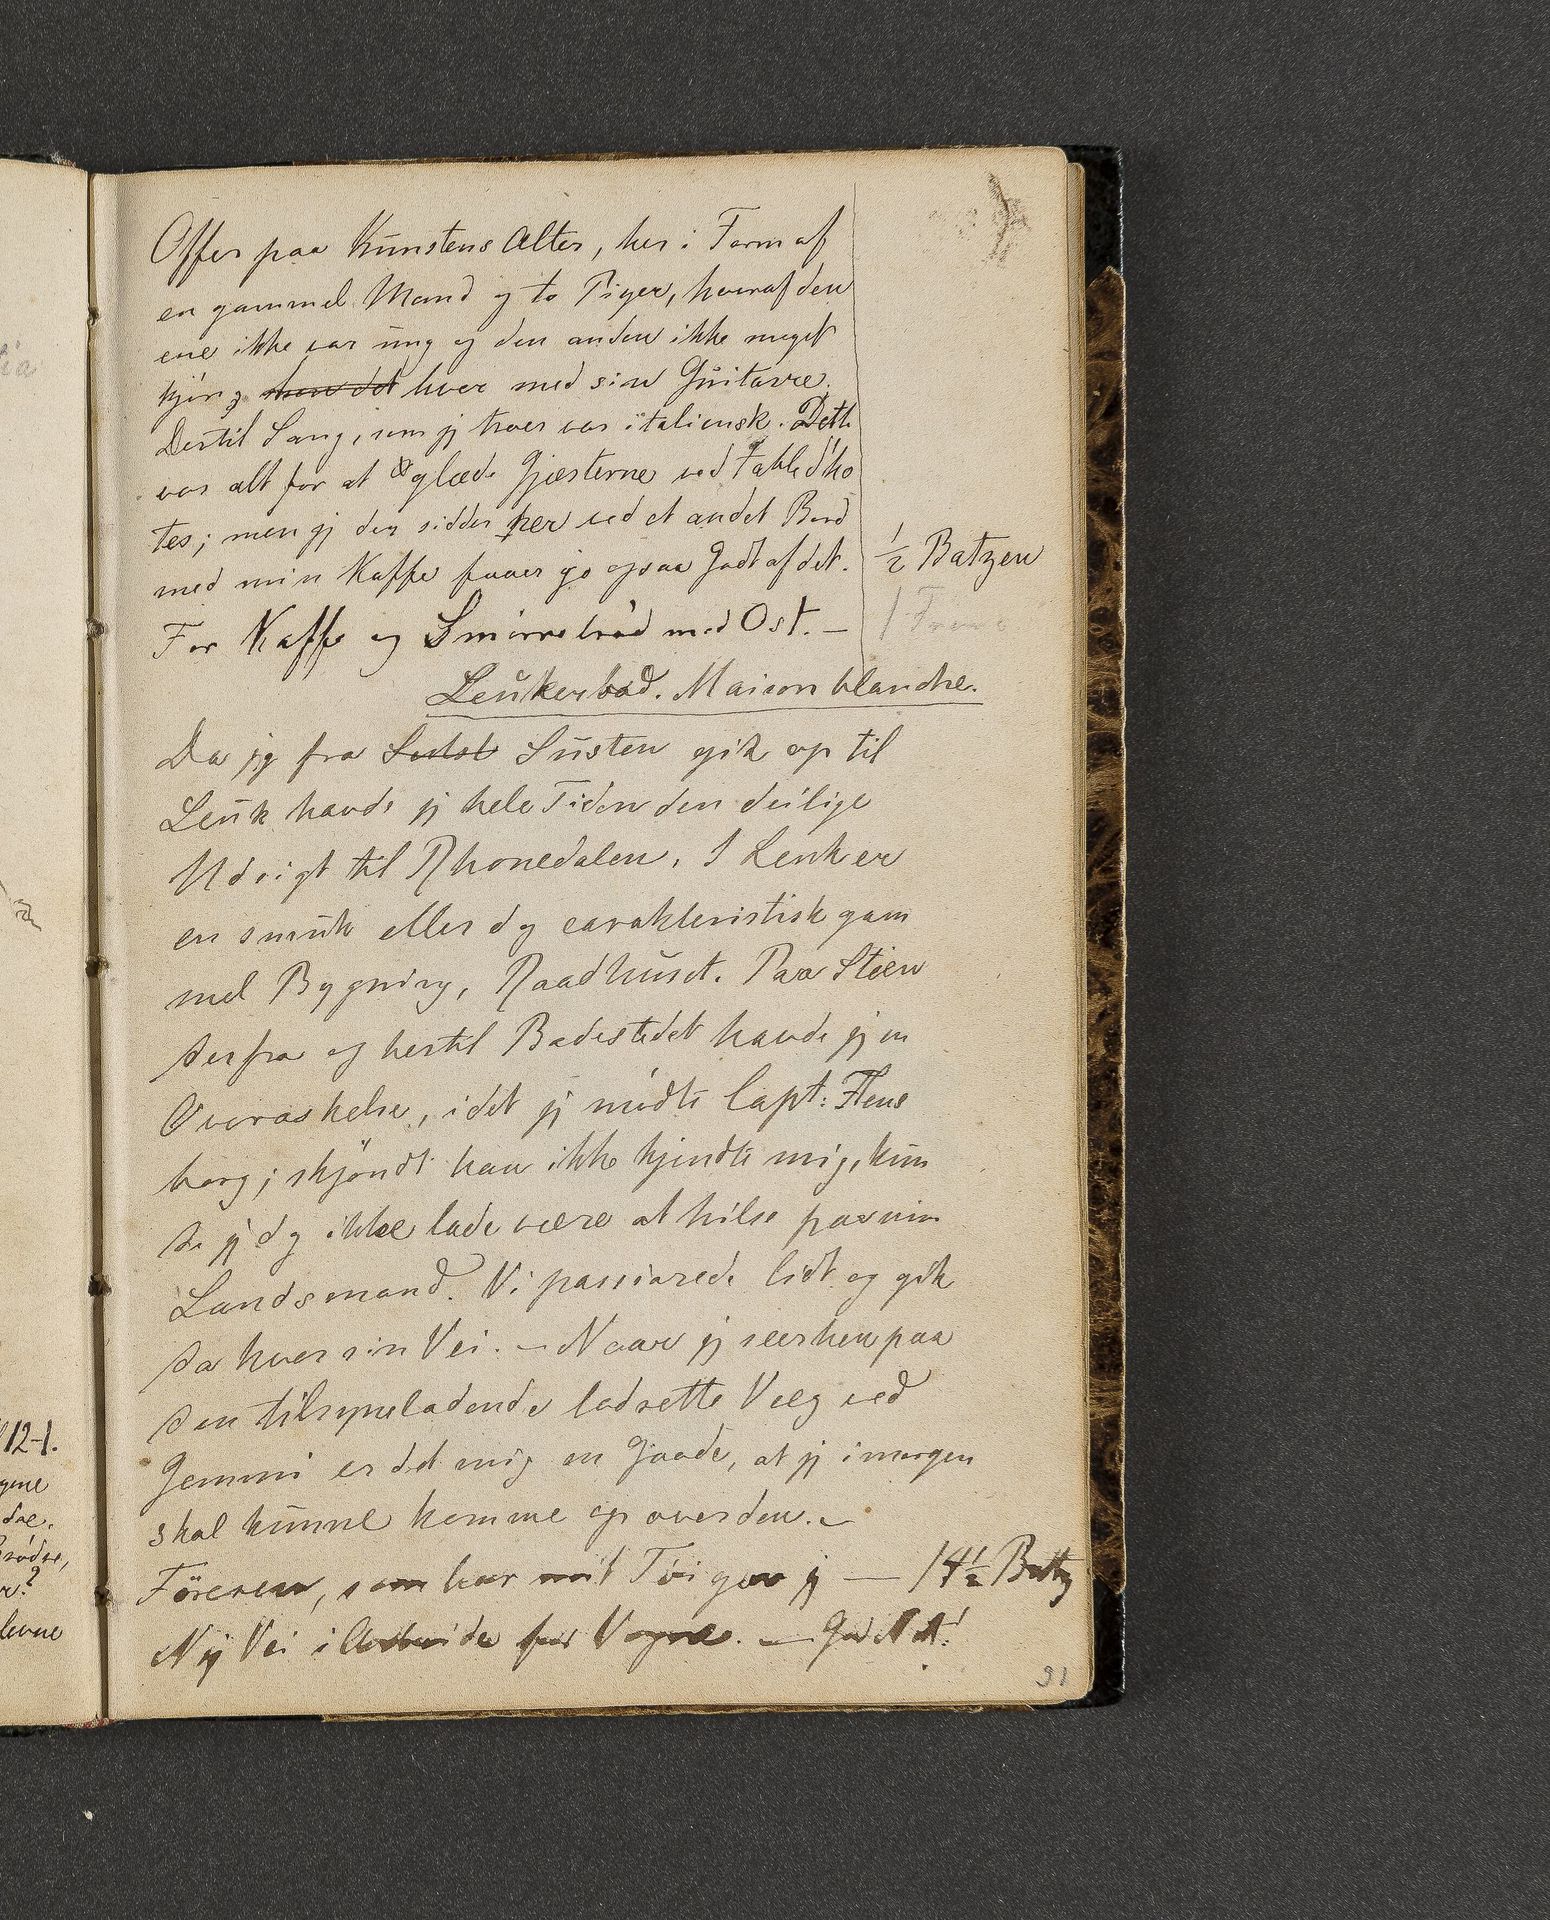 Offer paa Kunstens Alter, her i Form af
en gammel Mand og to Piger, hvoraf den
ene ikke var ung og den anden ikke meget
kjön, han det hver med sin Guitarre.
Dertil Sang, som jeg troer var italiensk. Dette
var alt for at glæde Gjæsterne ved Table d'ho
tes; men jeg der sidder her ved et andet Bord
med min Kaffe faaer jo ogsaa Godt af det. ½ Batzen
For Kaffe og Smörrebröd med Ost. — 1 Franc
Leukerbad. Maison blanche.
Da jeg fra Susten gik op til
Leuk havde jeg hele Tiden den deilige
Udsigt til Rhonedalen. I Leuk er
en smuk eller dog carakteristisk gam
mel Bygning, Raadhuset. Paa Stien
derfra og hertil Badestedet havde jeg en
Overraskelse, idet jeg mödte Capt: Flens
borg; skjöndt han ikke kjendte mig, kun
de jeg dog ikke lade være at hilse paa min
Landsmand. Vi passiarede lidt og gik
da hver sin Vei. — Naar jeg seer hen paa
den tilsyneladende lodrette Væg ved
Gemmi er det mig en Gaade, at jeg imorgen
skal kunne komme op over den. —
Föreren, som bar mit Töi gav jeg — 14½ Batz
Ny Vei i Arbeide for Vogne. — God Nat!
91
12-1.